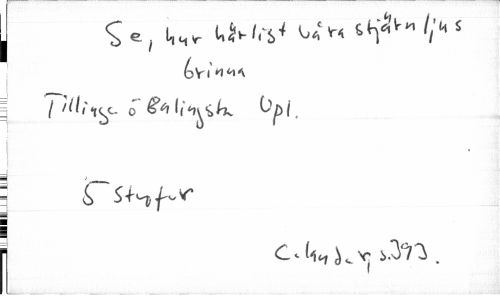 Se, hur härligt våra stjärnljus
brinna
Tillinge o Balingsta Upl.
5 strofer
Celander, s. 393.